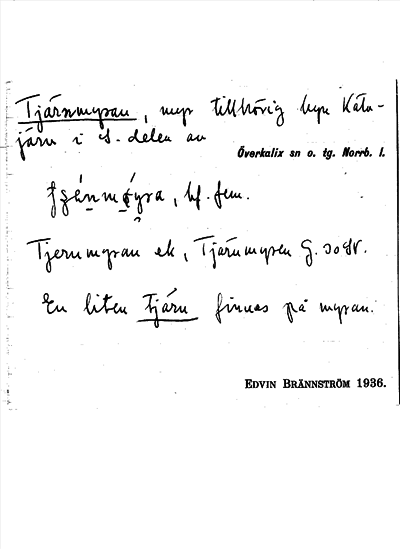 Tjärnmyran, myr tillhörig byn Käla-
järv i S. delen av
Överkalix sn o. tg. Norrb. l.
bf. fem.
Tjernmyran ek, Tjärnmyren G.
En liten tjärn finnes på myran.
EDVIN BRÄNNSTRÖM 1936.